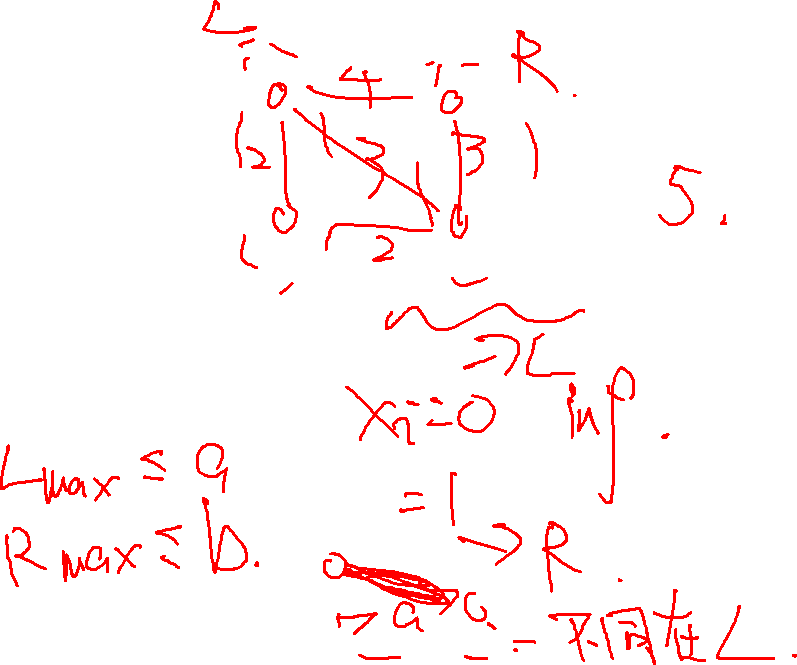 L
R.
4
2
3
3
2
5.
→L
x_i = 0
inf.
L max ≤ a
= 1
→ R.
R max ≤ b.
> a
不同在 L.